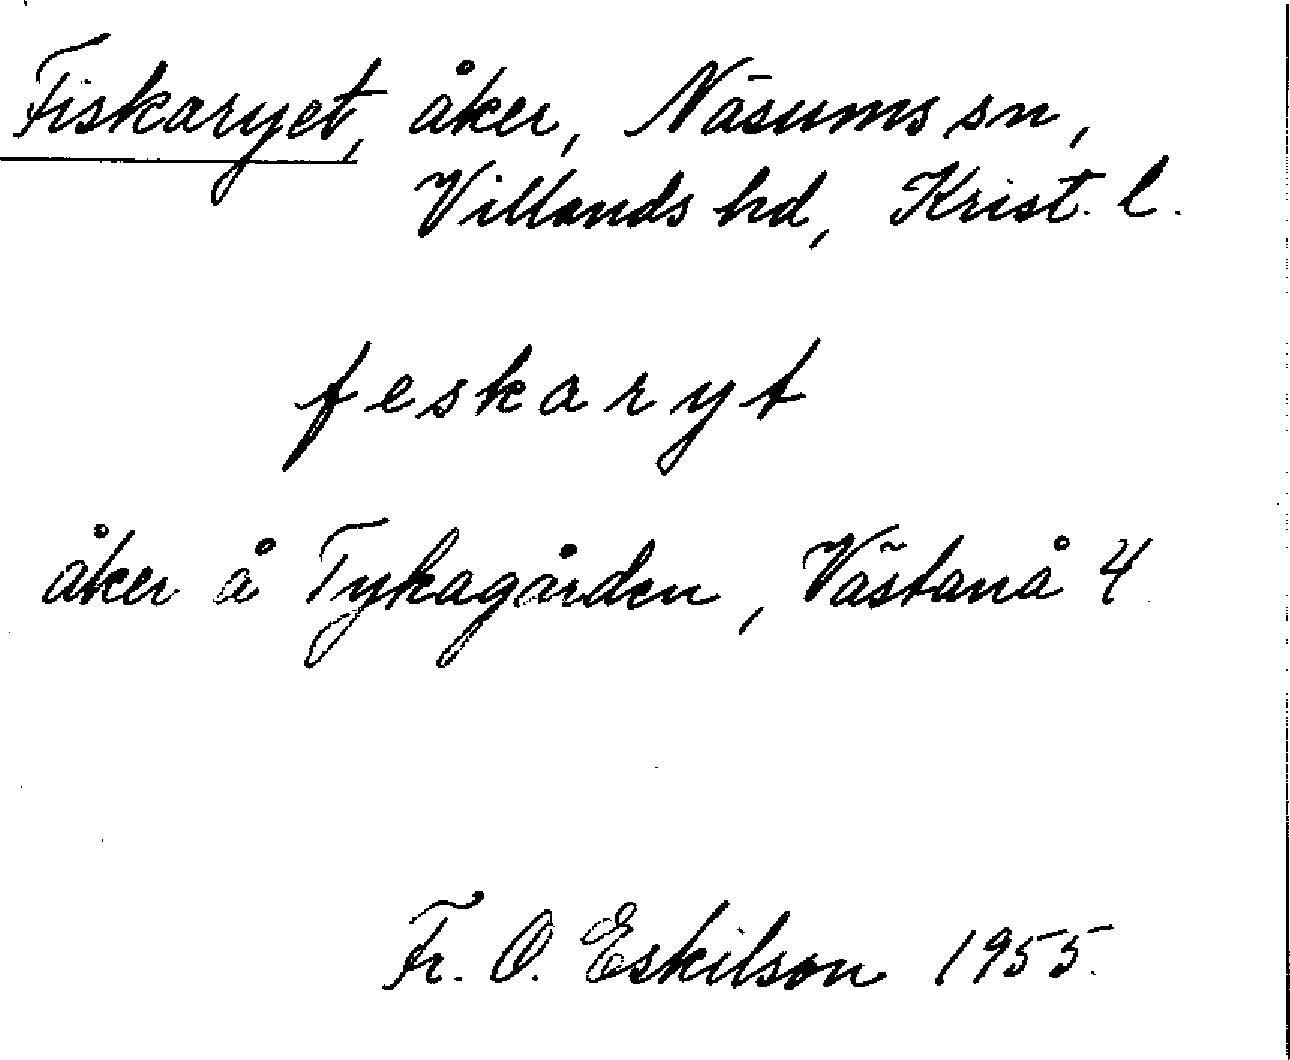 Fiskaryet, åker, Näsums sn,
Villands hd, Krist. l.
feskaryt
åker å Tykagården, Västanå 4
Fr. O. Eskilson 1955.